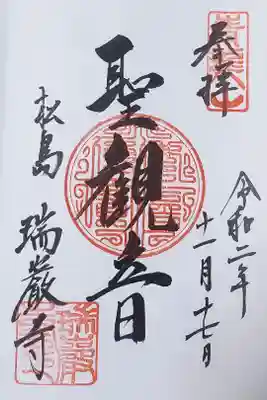 奉拝
令和二年
十一月十七日
聖観音
松島 瑞巌寺